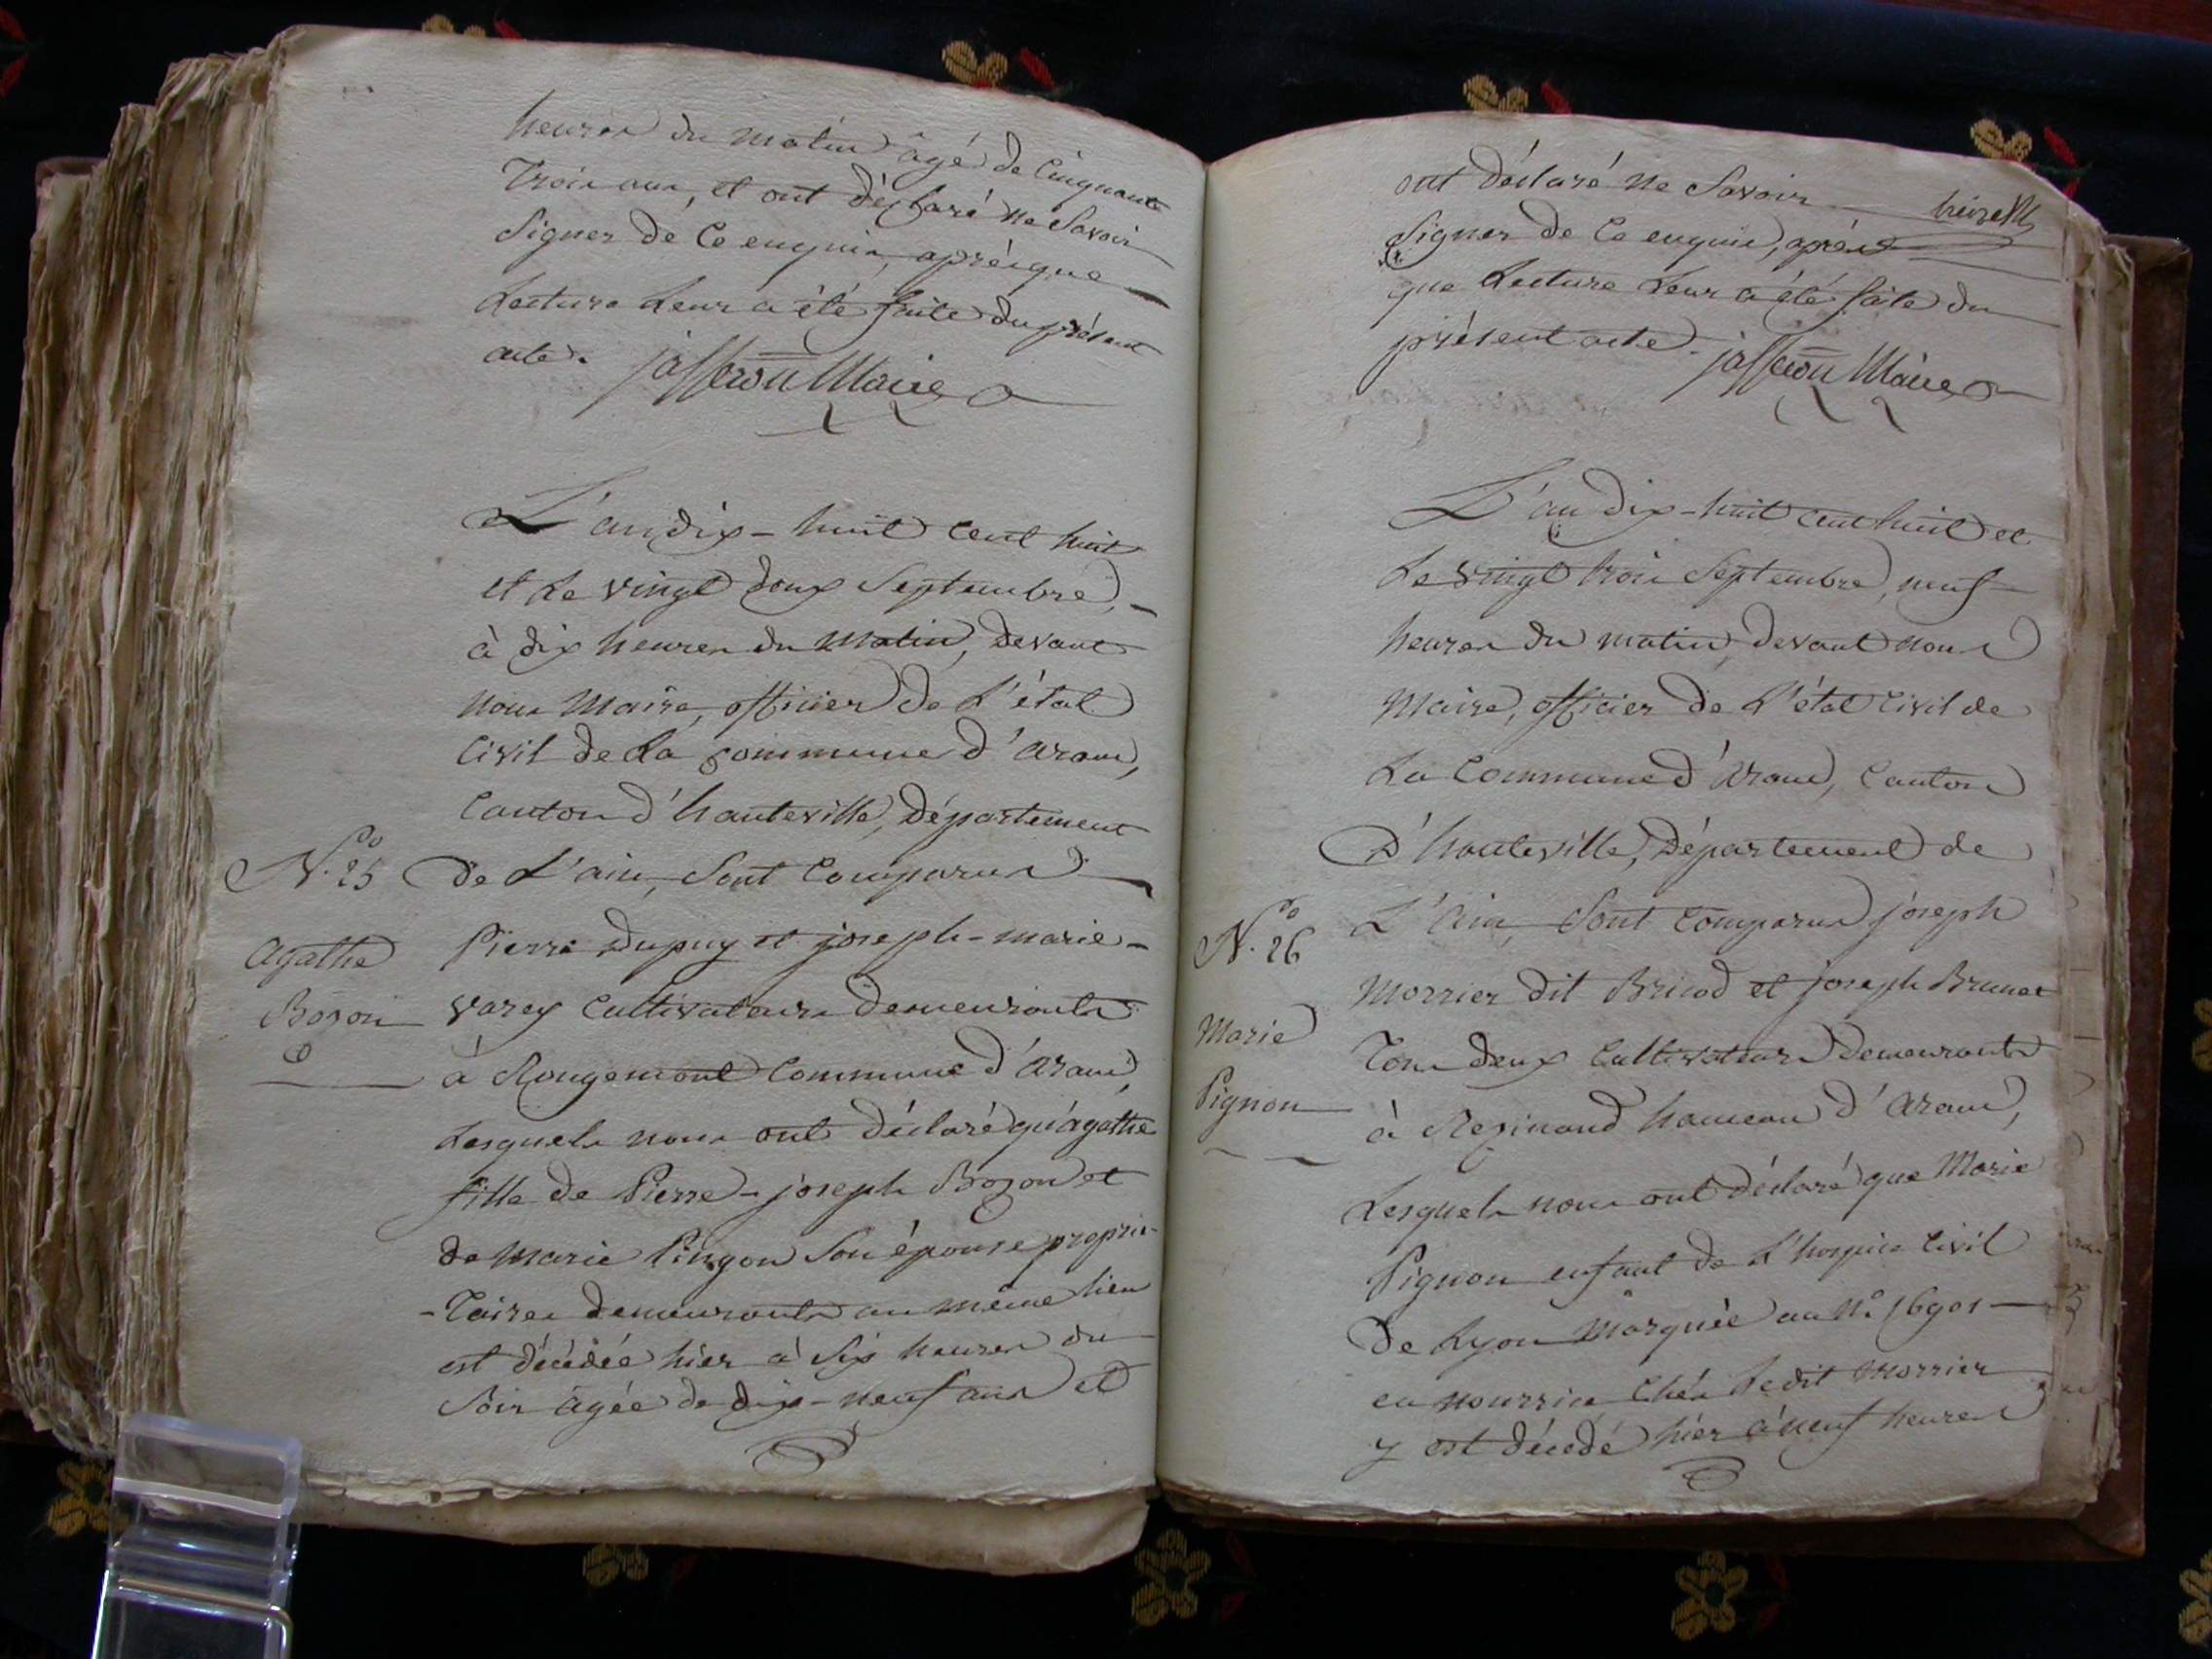 heures du matin âgé de Cinquante
Trois ans, et ont déclaré ne Savoir
Signer de Ce enquis, après que
Lecture Leur a été faite du présent
acte. jafferon Maire
L'an dix-huit Cent huit
et Le vingt deux Septembre,
à dix heures du Matin, devant
nous Maire, officier de L'état
Civil de La Commune d'aranc,
Canton d'hauteville, Département
N.o 25 de L'ain, Sont Comparus
Agathe Pierre Dupuy et joseph-marie-
Bozon Varey Cultivateurs demeurants
à Rougemont Commune d'aranc,
Lesquels nous ont déclaré qu'agathe
fille de Pierre-joseph Bozon et
de Marie Pingon Son épouse proprié-
-taires demeurants au même lieu
est décédée hier à Six heures du
Soir âgée de dix-neuf ans et
ont déclaré ne Savoir
Signer de Ce enquis, après
que Lecture Leur a été faite du
présent acte. jafferon Maire
L'an dix-huit cent huit et
Le vingt trois Septembre, neuf
heures du matin devant nous
Maire, officier de L'état Civil de
La Commune d'Aranc, Canton
D'hauteville, Département de
N.o 26 L'Ain, Sont Comparus joseph
Morrier dit Bricod et joseph Brunet
Marie Tous deux Cultivateurs Demeurants
Pignon à Resinand hameau d'Aranc,
Lesquels nous ont déclaré que Marie
Pignon enfant de L'hospice Civil
de Lyon Marquée au N.o 16901
en nourrice Chés Ledit Morrier
y est décédé hier à neuf heures